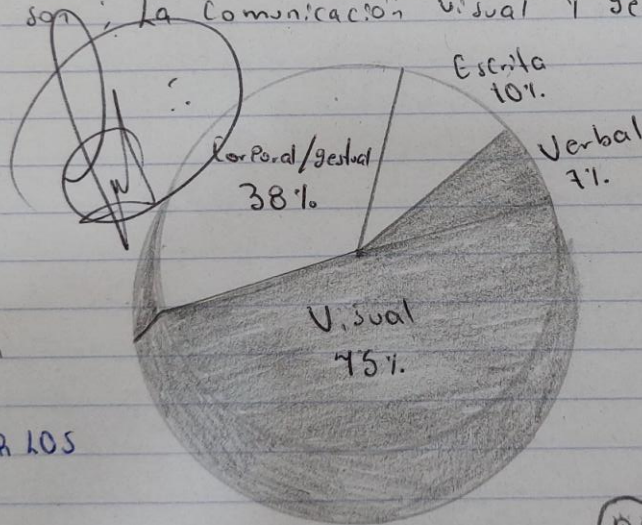 son: La Comunicación visual y ge
Escrita
10%.
Verbal
7%.
Corporal/gestual
38%.
Visual
45%.
LOS